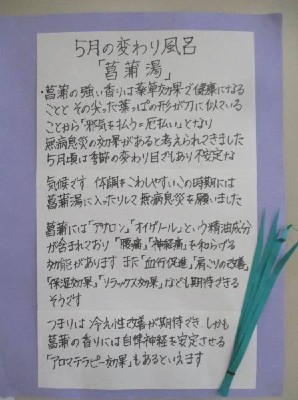 5月の変わり風呂
「菖蒲湯」
・菖蒲の強い香りは薬草効果で健康になる
ことと その尖った葉っぱの形が刀に似ている
ことから「邪気を払う=厄払い」となり
無病息災の効果があると考えられてきました
5月頃は季節の変わり目でもあり不安定な
気候です 体調をこわしやすいこの時期には
菖蒲湯に入ったりして無病息災を願いました
菖蒲には「アサロン」「オイゲノール」という精油成分
が含まれており 「腰痛」「神経痛」を和らげる
効能があります また「血行促進」「肩こりの改善」
「保湿効果」「リラックス効果」なども期待できる
そうです
つまりは 冷え性改善が期待でき しかも
菖蒲の香りには自律神経を安定させる
「アロマテラピー効果」もあるといえます